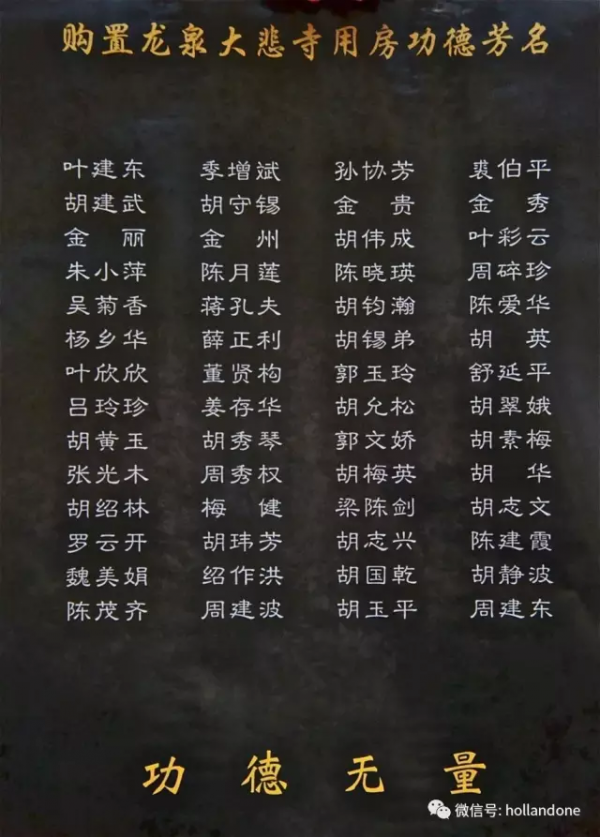 购置龙泉大悲寺用房功德芳名
叶建东 季增斌 孙协芳 裘伯平
胡建武 胡守锡 金贵 金秀
金丽 金州 胡伟成 叶彩云
朱小萍 陈月莲 陈晓瑛 周碎珍
吴菊香 蒋孔夫 胡钧瀚 陈爱华
杨乡华 薛正利 胡锡弟 胡英
叶欣欣 董贤构 郭玉玲 舒延平
吕玲珍 姜存华 胡允松 胡翠娥
胡黄玉 胡秀琴 郭文娇 胡素梅
张光木 周秀权 胡梅英 胡华
胡绍林 梅健 梁陈剑 胡志文
罗云开 胡玮芳 胡志兴 陈建霞
魏美娟 绍作洪 胡国乾 胡静波
陈茂齐 周建波 胡玉平 周建东
功德无量
微信号: hollandone